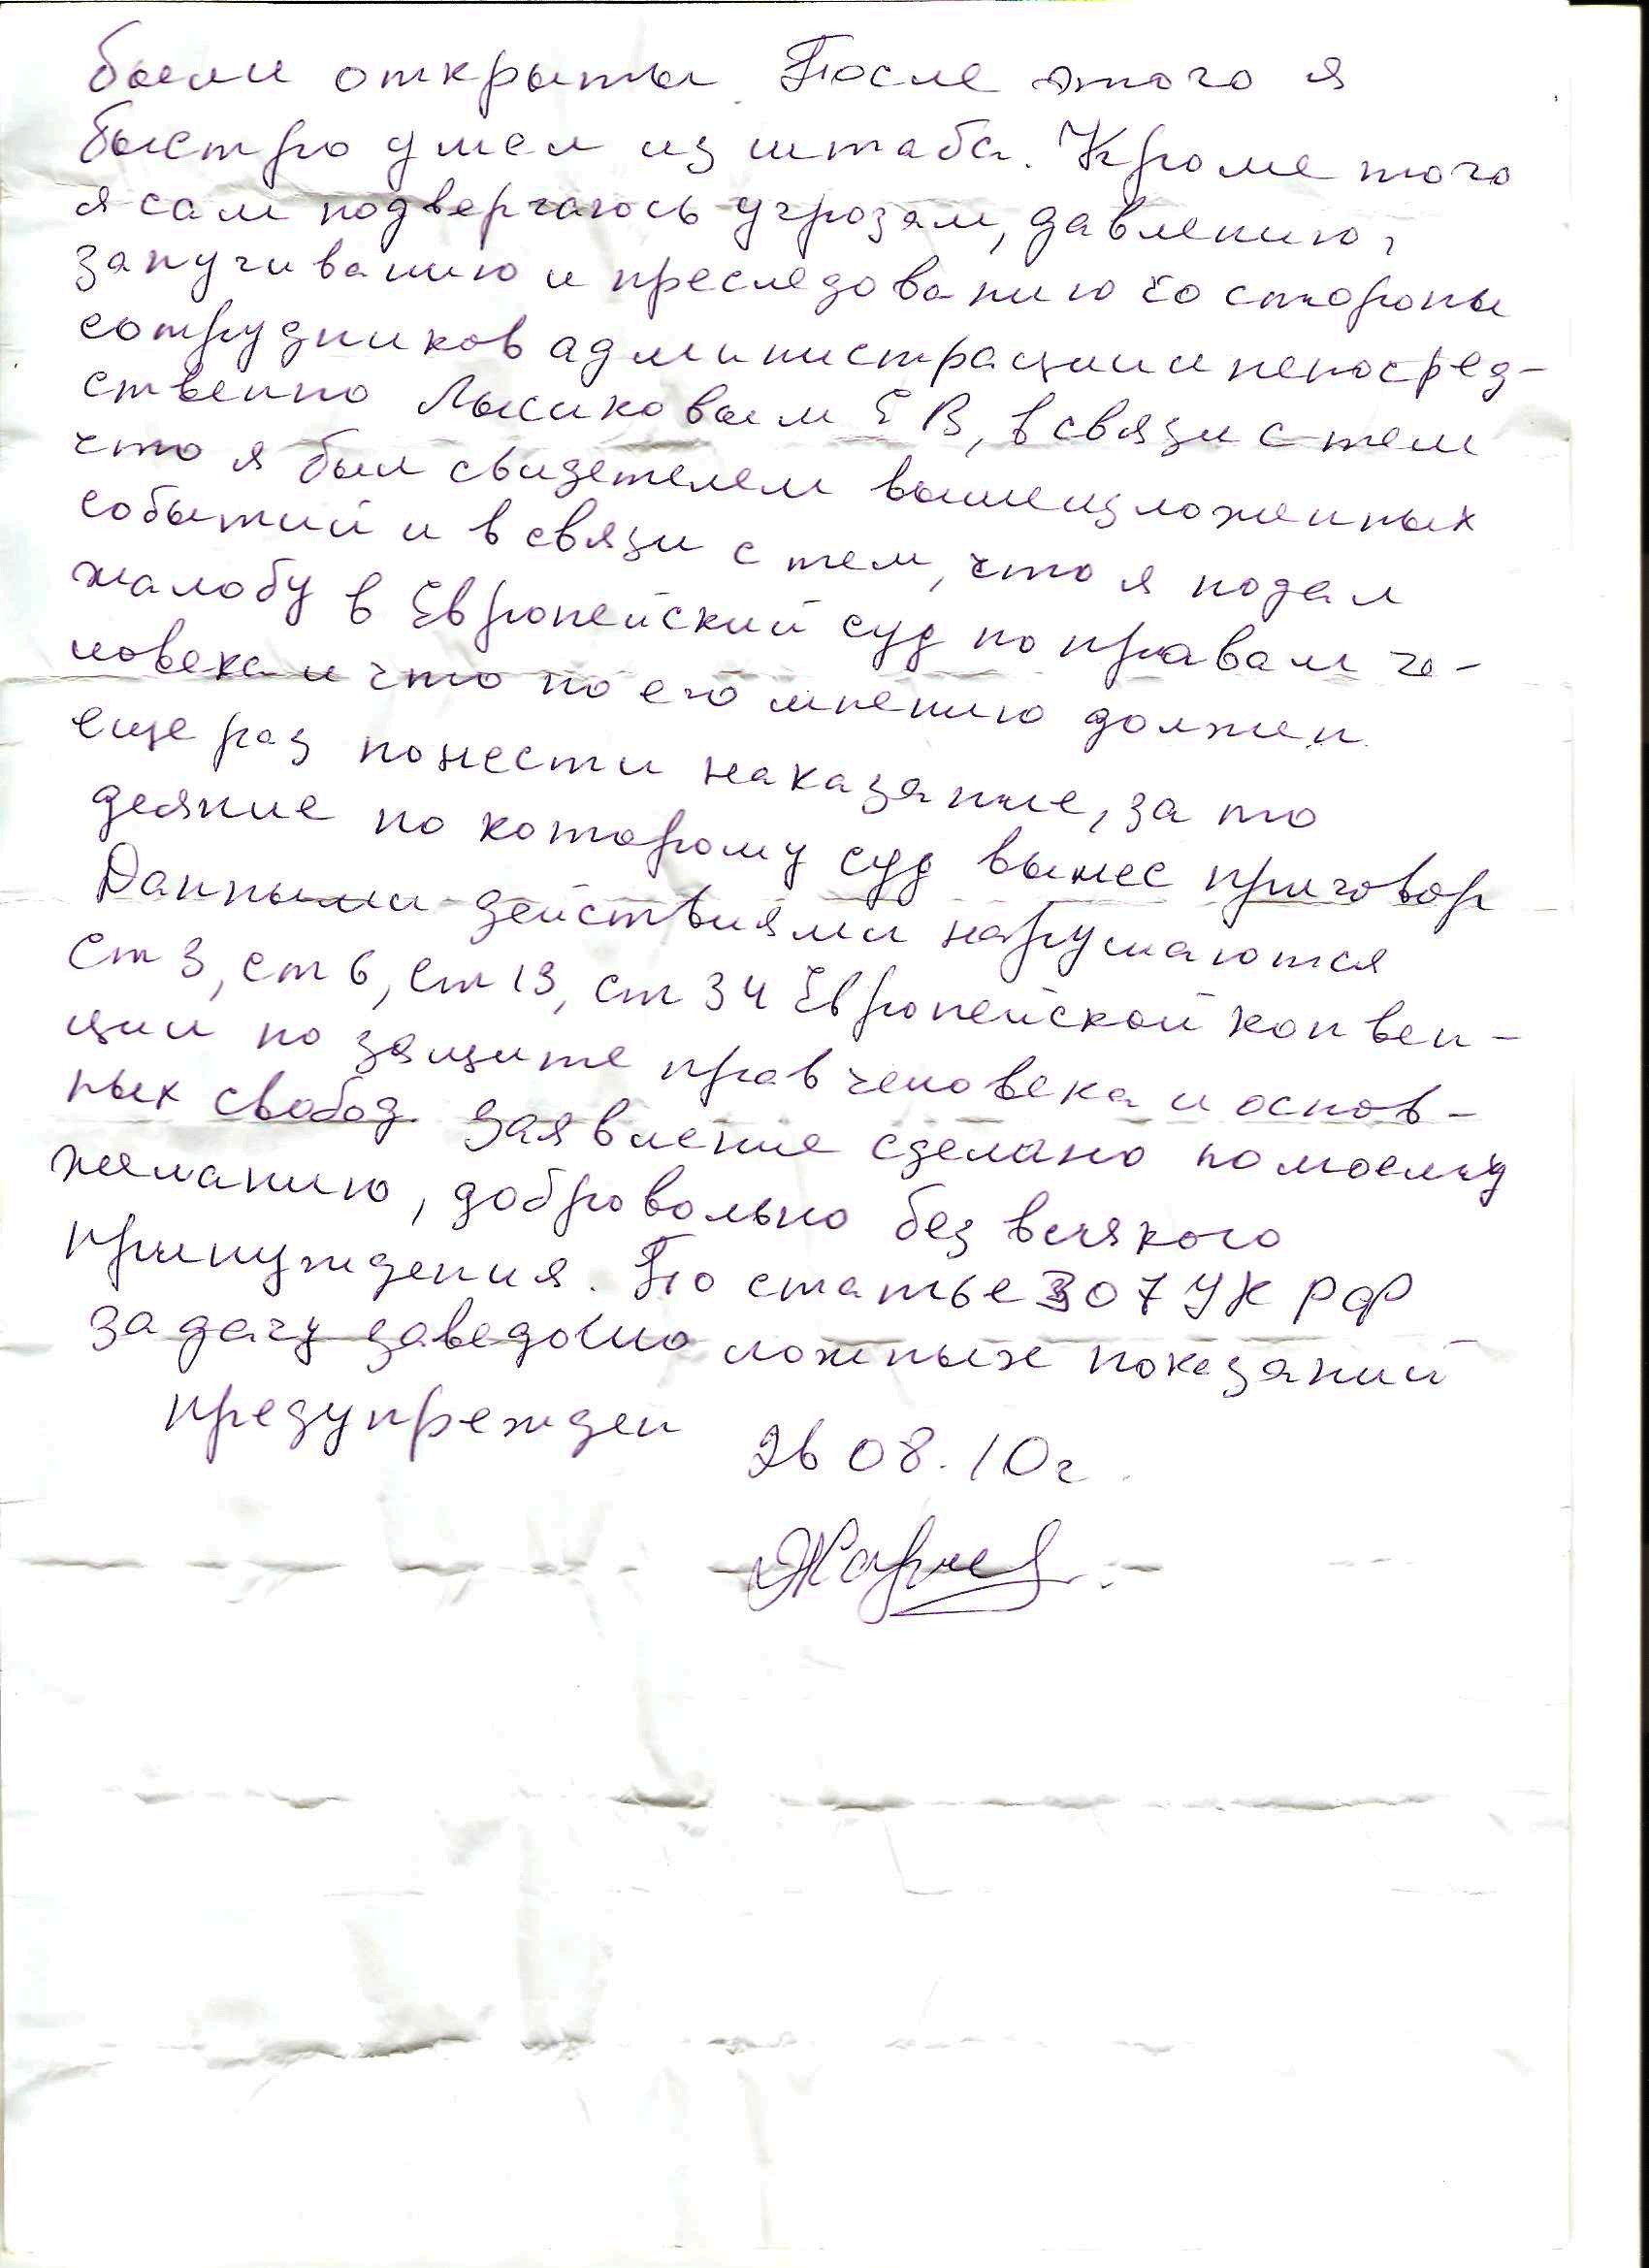 были открыты. После этого я
быстро ушел из штаба. Кроме того
я сам подвергаюсь угрозам, давлению,
запугиванию и преследованию со стороны
сотрудников администрации и непосред-
ственно Лысиковым Е В, в связи с тем
что я был свидетелем вышеизложенных
событий и в связи с тем, что я подал
жалобу в Европейский суд по правам че-
ловека и что по его мнению должен
еще раз понести наказание, за то
деяние по которому суд вынес приговор
Данными действиями нарушаются
ст 3, ст 6, ст 13, ст 34 Европейской конвен-
ции по защите прав человека и основ-
ных свобод. Заявление сделано по моему
желанию, добровольно без всякого
принуждения. По статье 307 УК РФ
за дачу заведомо ложных показаний
предупрежден 26 08. 10г.